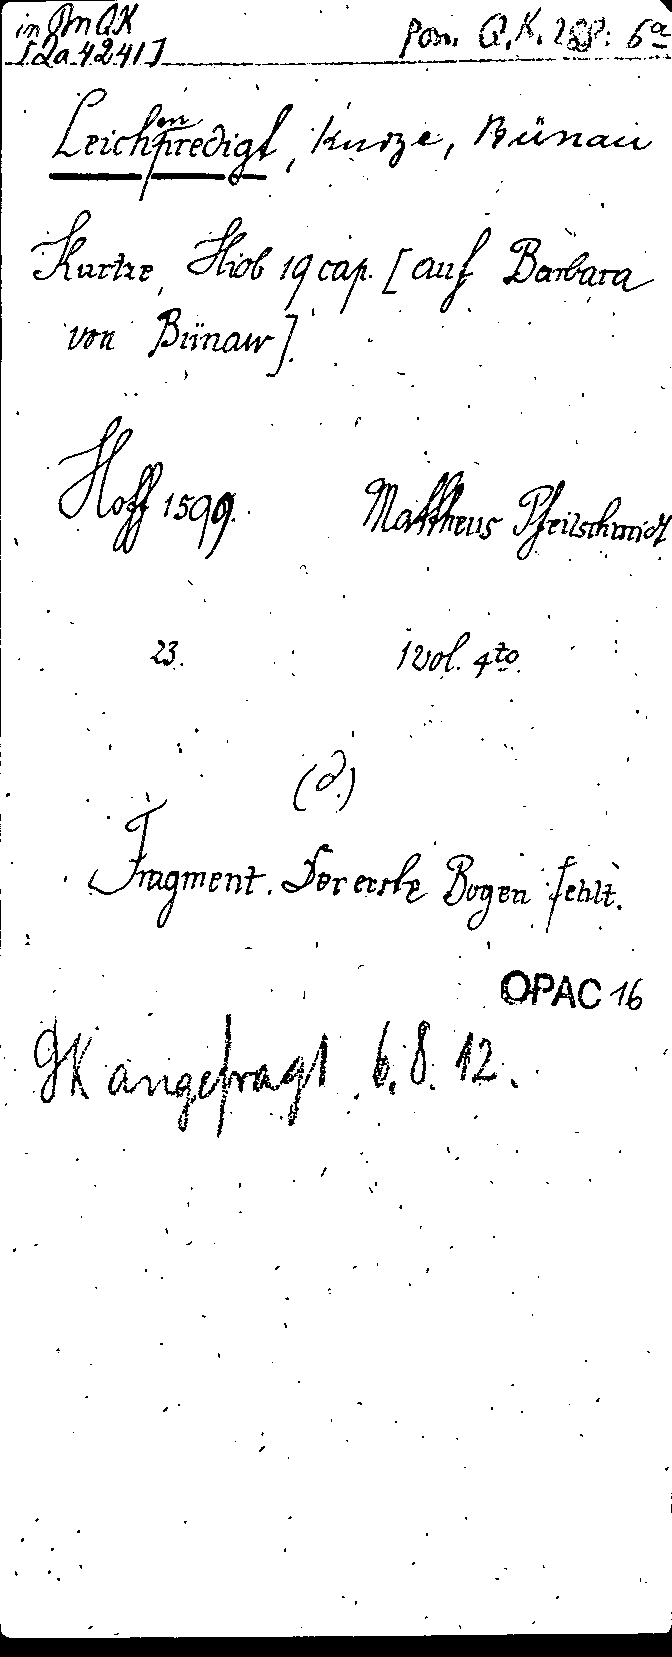 in Pn QK
[2a 4241]
Pon. Q.K. 288: 6a
Leichenpredigt, Kurze, Bünau
Kurtze, Hiob 19 cap. [auf Barbara
von Bünaw]
Hoff 1599. Mattheus Pfeilschmidt
23. 1 vol. 4to
(d.)
Fragment. Der erste Bogen fehlt.
OPAC 16
GK angefragt 6.8.12.